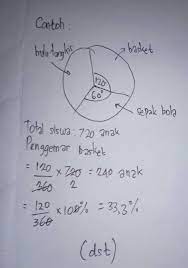 Contoh :
bulu tangkis
basket
120°
60°
sepak bola
Total siswa : 720 anak
Penggemar basket
= 120/360 x 720 = 240 anak
2
= 120/360 x 100% = 33,3%
(dst)